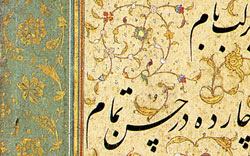 بام
چارده در حسن تمام